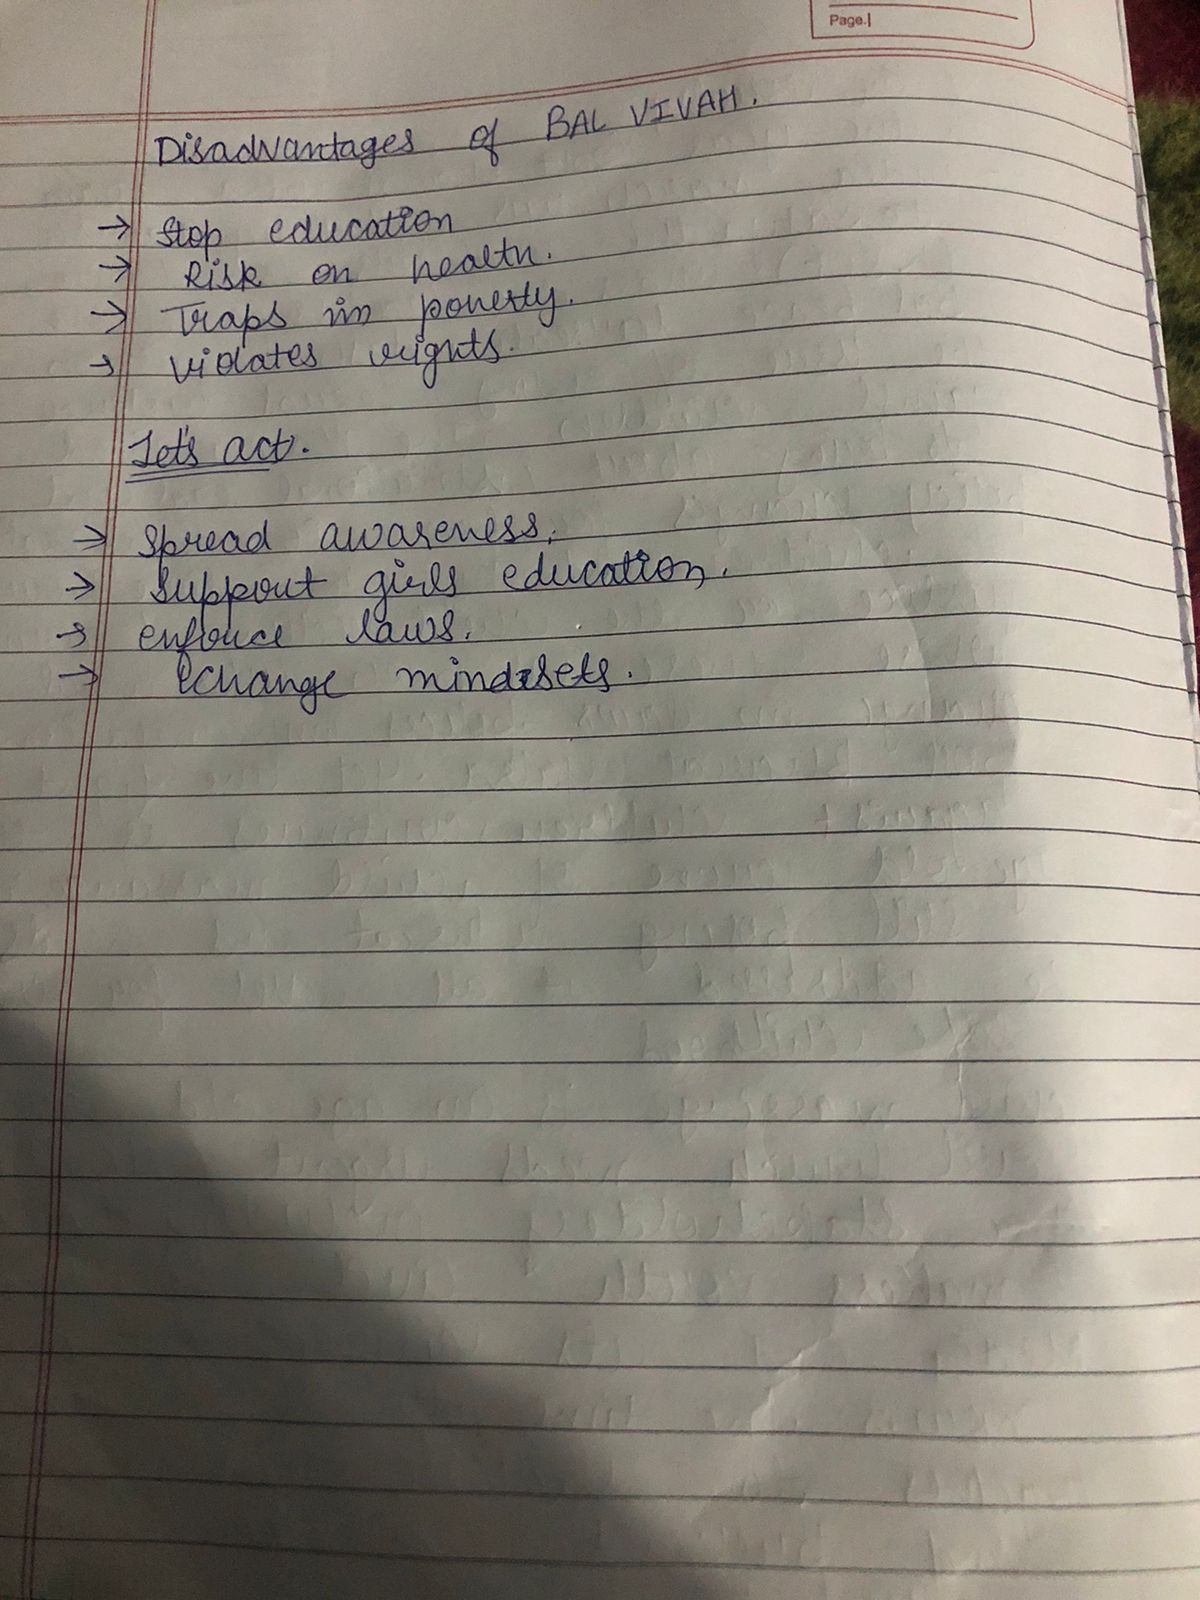 Page.
Disadvantages of BAL VIVAH.
→ Stop education
→ Risk on health.
→ Traps in poverty.
→ violates rights.
Let's act.
→ Spread awareness.
→ Support girls education.
→ enforce laws.
→ change mindsets.